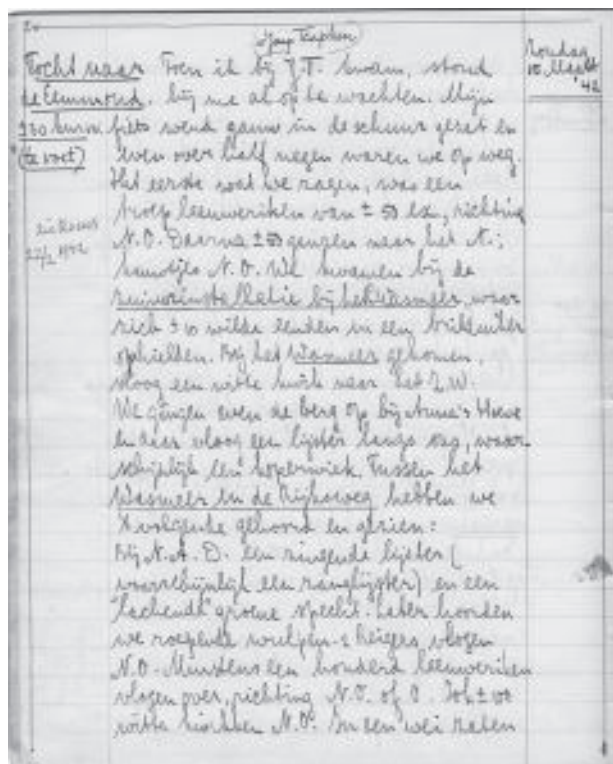 20
(Jaap Taapken)
Zondag
15 Maart
'42
Tocht naar
de Eemmond.
±30 km
(te voet)
Toen ik bij J.T. kwam, stond
hij me al op te wachten. Mijn
fiets werd gauw in de schuur gezet en
even over half negen waren we op weg.
Het eerste wat we zagen, was een
troep leeuweriken van ± 50 ex, richting
N.O. Daarna ± 50 ganzen naar het N.;
kauwtjes N.O. We kwamen bij de
zuiverinstallatie bij het Wasmeer, waar
zich ± 10 wilde eenden in een
ophielden. Bij het Wasmeer gekomen,
vloog een witte kwik naar het Z.W.
We gingen even de berg op bij Anna's Hoeve
en daar vloog een lijster langs ons, waar-
schijnlijk een koperwiek. Tussen het
Wasmeer en de Rijksweg hebben we
't volgende gehoord en gezien:
Bij N.A.D. een zingende lijster (
waarschijnlijk een zanglijster) en een
"lachende" groene specht. Later hoorden
we roepende wulpen. 2 Reigers vlogen
N.O. Minstens een honderd leeuweriken
vlogen over, richting N.O. of O. Ook ± 100
witte kwikken N.O. In een wei zaten